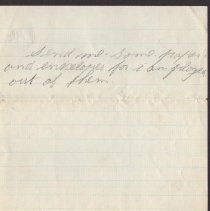 Send me some paper
and envelopes for i am
out of them